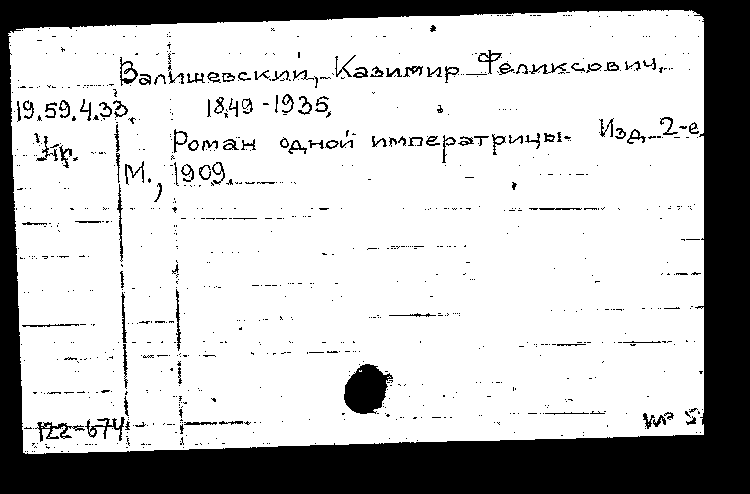 Валишевский, Казимир Феликсович,
19.59.4.33. 1849-1935,
Роман одной императрицы. Изд. 2-е.
М., 1909.
122-674